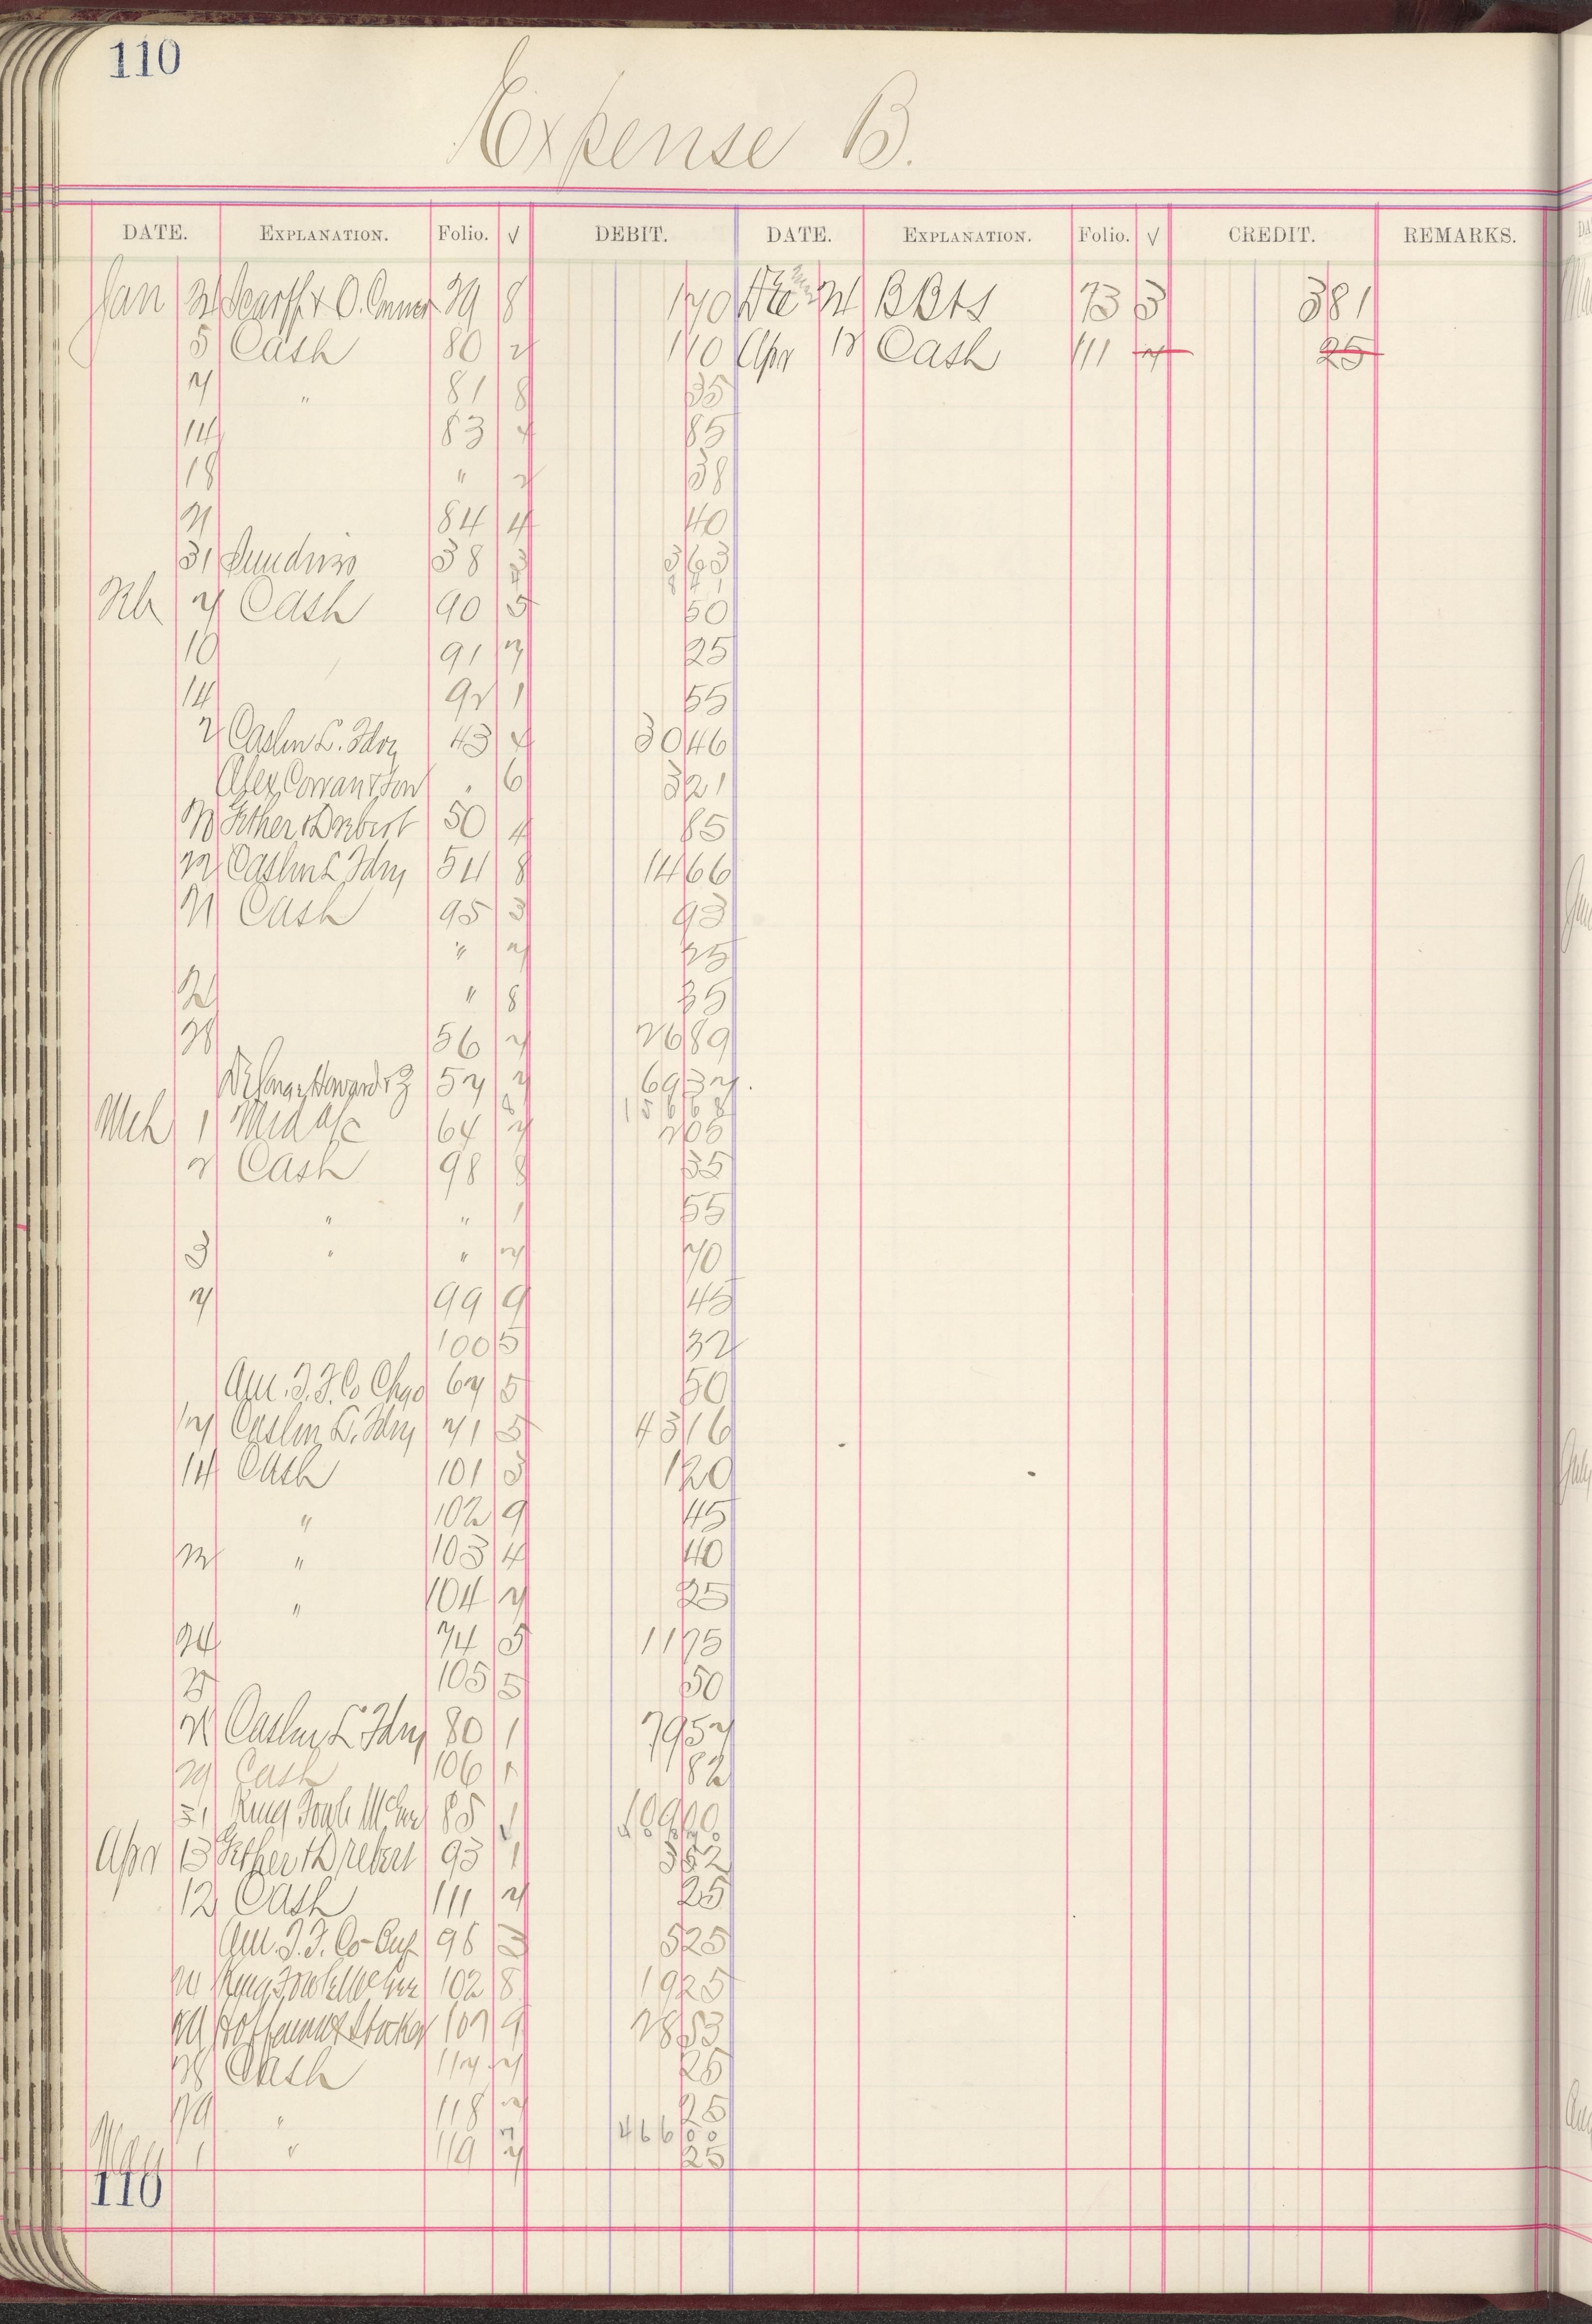 110
Expense B.
DATE. EXPLANATION. Folio. √ DEBIT. DATE. EXPLANATION. Folio. √ CREDIT. REMARKS.
Jan & O. Conner 39 8 1 70 BBtS 73 3 3 81
5 Cash 80 2 1 10 Apr 12 Cash 111 7 25
7 " 81 8 35
14 83 85
18 " 7 38
21 84 4 40
31 Sundries 38 3 3 63
Feb 7 Cash 90 5 50
10 91 7 25
14 92 1 55
2 Caslon L. Fdry 43 30 46
Alex Cowan & Son " 6 3 21
Gether & Drebert 50 4 85
22 Caslon L Fdry 54 8 14 66
21 Cash 95 3 93
" 7 25
" 8 35
28 56 7 26 89
57 7 69 37
156 68
Mch 1 Mdse a/c 64 7 2 05
2 Cash 98 8 35
" " 1 55
3 " " 7 70
7 99 9 45
100 5 32
Am. T. F. Co Chgo 67 5 50
17 Caslon L. Fdry 71 5 43 16
14 Cash 101 3 1 20
" 102 9 45
" 103 4 40
" 104 7 25
24 74 5 11 75
25 105 5 50
Caslon L Fdry 80 1 79 57
29 Cash 106 82
31 King Fowle McGee 85 1
Apr 13 Gether & Drebert 93 1 3 52
12 Cash 111 7 25
Am. T. F. Co 96 3 5 25
King Fowle McGee 102 8 19 25
107 9 28 53
28 Cash 117 7 25
29 " 118 7 25
466 00
May 1 " 119 7 25
110